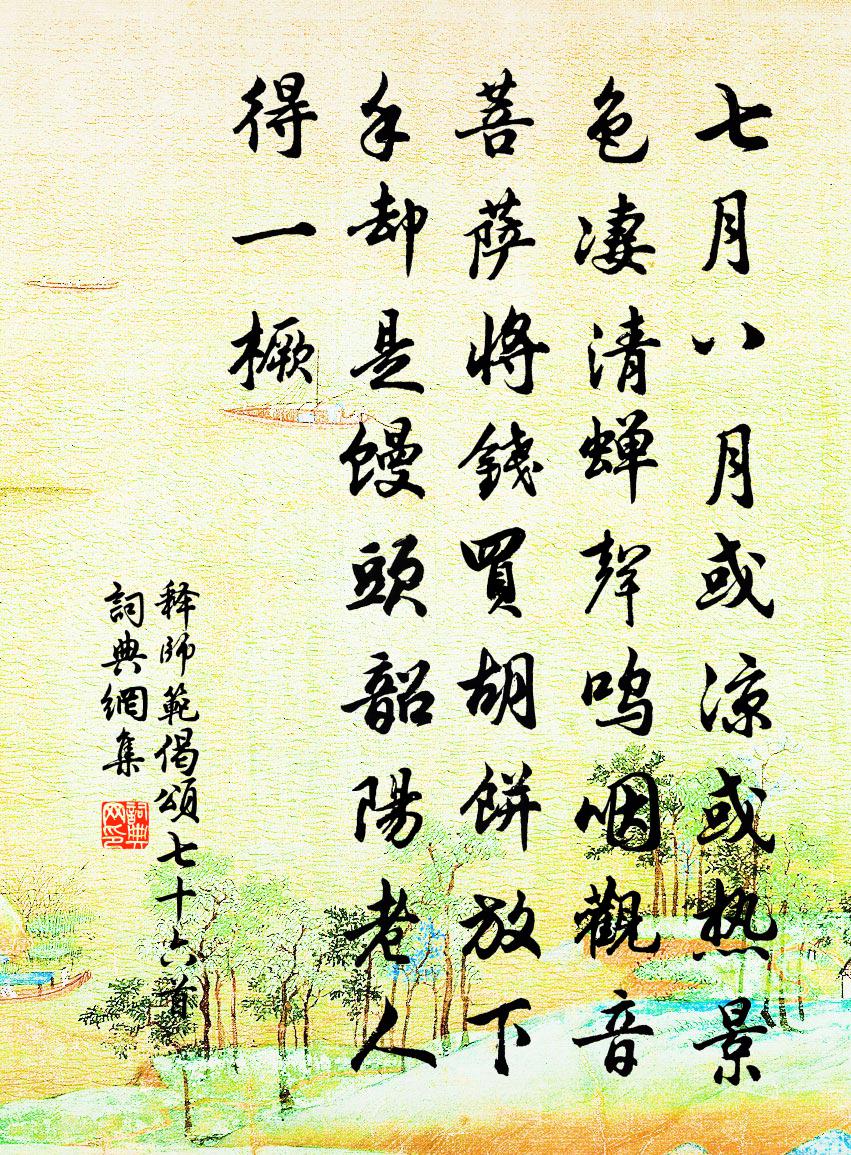 七月八月或凉或热景
色凄清蝉聲呜咽觀音
菩萨將錢買胡餅放下
手却是馒頭韶陽老人
得一橛
释師範偈頌七十六首
詞典網集
詞典网印